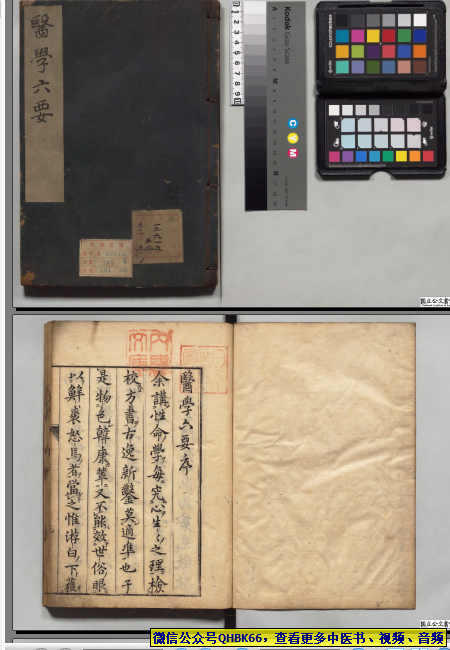 醫學六要
Kodak Gray Scale
C
Y
M
国立公文書
醫學六要序
余講性命學每究心生〻之理檢
校方書古逸新鑿莫適準也于
是物色韓康輩又不能效世俗眼
以鮮裘怒馬者當之惟游白下獲
国立公文書
微信公众号QHBK66，查看更多中医书、视频、音频